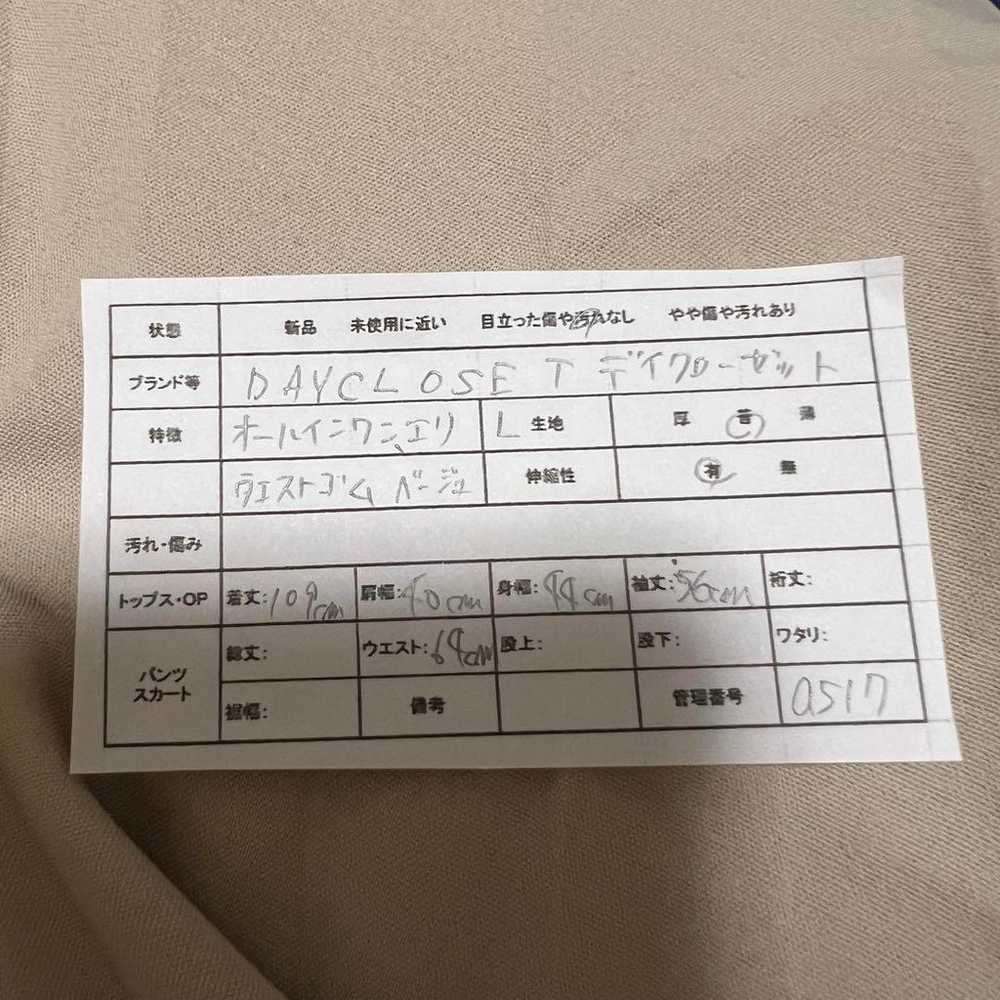 状態 新品 未使用に近い 目立った傷や汚れなし やや傷や汚れあり
ブランド等 DAYCLOSET デイクローゼット
特徴 オールインワン、エリ L 生地 厚 普 薄
ウエストゴム ベージュ 伸縮性 有 無
汚れ・傷み
トップス・OP 着丈:109cm 肩幅:40cm 身幅:44cm 袖丈:56cm 裄丈:
パンツ スカート 総丈: ウエスト:64cm 股上: 股下: ワタリ:
裾幅: 備考 管理番号 0517